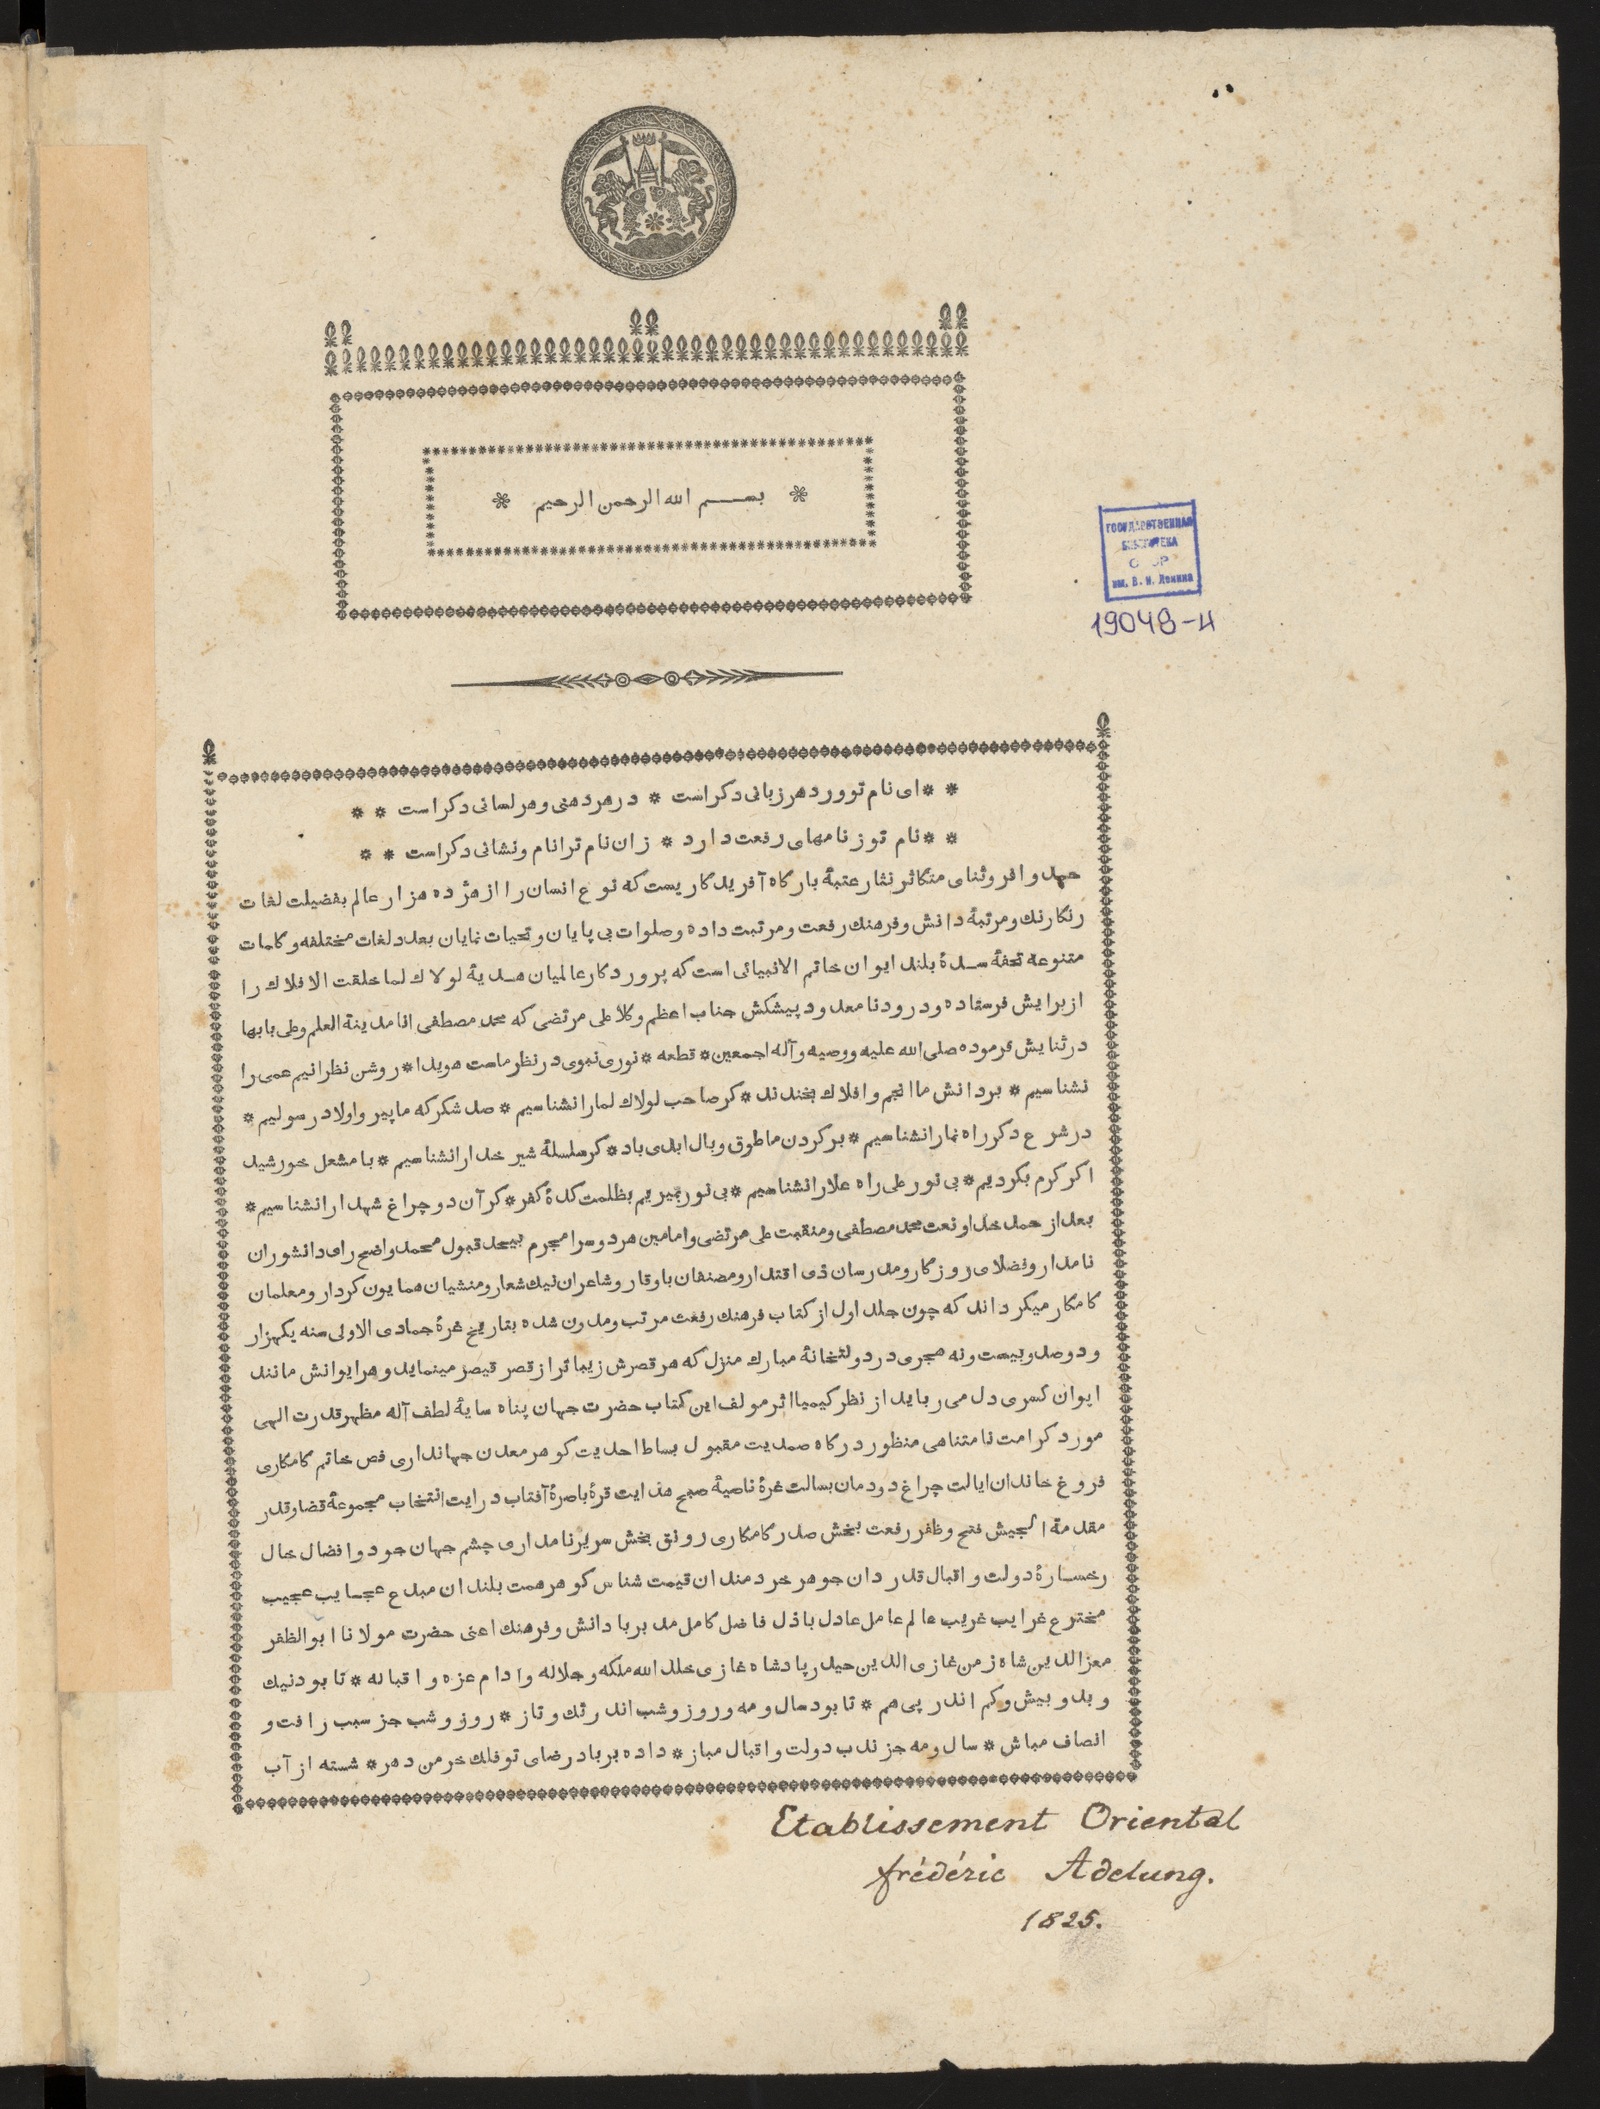 ❊ بســـم الله الرحمن الرحيم ❊
ГОСУДАРСТВЕННАЯ
БИБЛИОТЕКА
СССР
им. В. И. Ленина
19048-4
* * ای نام تو ورد هر زبانی دکر است * در هر دهنی و هر لسانی دکر است * *
* * نام تو ز نامهای رفعت دارد * زان نام ترا نام و نشانی دکر است * *
حمد وافر و ثنای متکاثر نثار عتبهٔ بارکاه آفریدکاریست که نوع انسان را از هژده هزار عالم بفضیلت لغات
رنکارنك و مرتبهٔ دانش و فرهنك رفعت و مرتبت داده و صلوات بی پایان و تحیات نمایان بعدد لغات مختلفه و کلمات
متنوعه تحفهٔ سدهٔ بلند ایوان خاتم الانبیائی است که پروردکار عالمیان هدیهٔ لولاك لما خلقت الافلاك را
از برایش فرستاده و درود نامعدود پیشکش جناب اعظم و کلا علی مرتضی که محمد مصطفی انا مدینة العلم و علی بابها
در ثنایش فرموده صلی الله علیه و وصیه و آله اجمعین * قطعه * نوری نبوی در نظر ماست هویدا * روشن نظرانیم عمی را
نشناسیم * بر دانش ما انجم و افلاك بخندند * کر صاحب لولاك لما را نشناسیم * صد شکر که ما پیرو اولاد رسولیم *
در شرع دکر راه نما را نشناسیم * بر کردن ما طوق وبال ابدی باد * کر سلسلهٔ شیر خدا را نشناسیم * با مشعل خورشید
اکر کرم بکردیم * بی نور علی راه علا را نشناسیم * بی نور بمیریم بظلمت کدهٔ کفر * کر آن دو چراغ شهدا را نشناسیم *
بعد از حمد خدا و نعت محمد مصطفی و منقبت علی مرتضی و امامین هر دو سرا مجرم بیحد قبول محمد واضح رای دانشوران
نامدار و فضلای روزکار و مدرسان ذی اقتدار و مصنفان باوقار و شاعران نیك شعار و منشیان همایون کردار و معلمان
کامکار میکرداند که چون جلد اول از کتاب فرهنك رفعت مرتب و مدون شده بتاریخ غرهٔ جمادی الاولی سنه یکهزار
و دوصد و بیست و نه هجری در دولتخانهٔ مبارك منزل که هر قصرش زیباتر از قصر قیصر مینماید و هر ایوانش مانند
ایوان کسری دل می رباید از نظر کیمیا اثر مولف این کتاب حضرت جهان پناه سایهٔ لطف آله مظهر قدرت الهی
مورد کرامت نامتناهی منظور درکاه صمدیت مقبول بساط احدیت کوهر معدن جهانداری فص خاتم کامکاری
فروغ خاندان ایالت چراغ دودمان بسالت غرهٔ ناصیهٔ صبح هدایت قرهٔ باصرهٔ آفتاب درایت انتخاب مجموعهٔ قضا و قدر
مقدمة الجیش فتح و ظفر رفعت بخش صدر کامکاری رونق بخش سریر نامداری چشم جهان جود و افضال خال
رخسارهٔ دولت و اقبال قدردان جوهر خردمندان قیمت شناس کوهر همت بلندان مبدع عجایب عجیب
مخترع غرایب غریب عالم عامل عادل باذل فاضل کامل مدبر با دانش و فرهنك اعنی حضرت مولانا ابوالظفر
معزالدین شاه زمن غازی الدین حیدر پادشاه غازی خلد الله ملکه و جلاله و ادام عزه و اقباله * تا بود نیك
و بد و بیش و کم اندر پی هم * تا بود سال و مه و روز و شب اندر تك و تاز * روز و شب جز سبب رافت و
انصاف مباش * سال و مه جز ندب دولت و اقبال مباز * داده بر باد رضای تو فلك خرمن دهر * شسته از آب
Etablissement Oriental
frédéric Adelung.
1825.